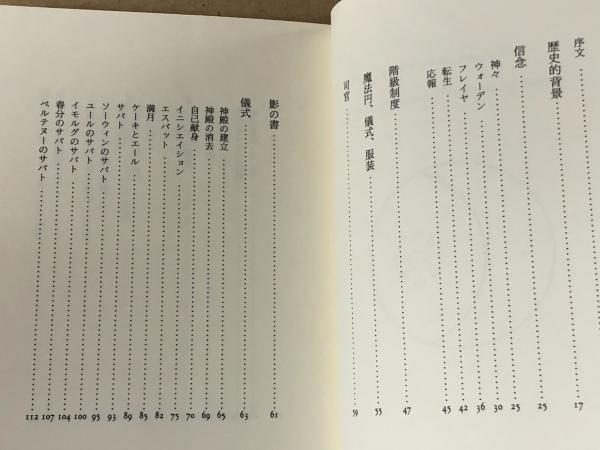 序文
歴史的背景 17
信念 25
神々 25
ウォーデン 30
フレイヤ 36
転生 42
応報 45
階級制度 47
魔法円、儀式、服装 55
司官 59
影の書 61
儀式 63
神殿の建立 65
神殿の消去 69
自己献身 70
イニシエイション 75
エスバット 82
満月 85
ケーキとエール 89
サバト 93
ソーウィンのサバト 95
ユールのサバト 100
イモルグのサバト 104
春分のサバト 107
ベルテヌーのサバト 112